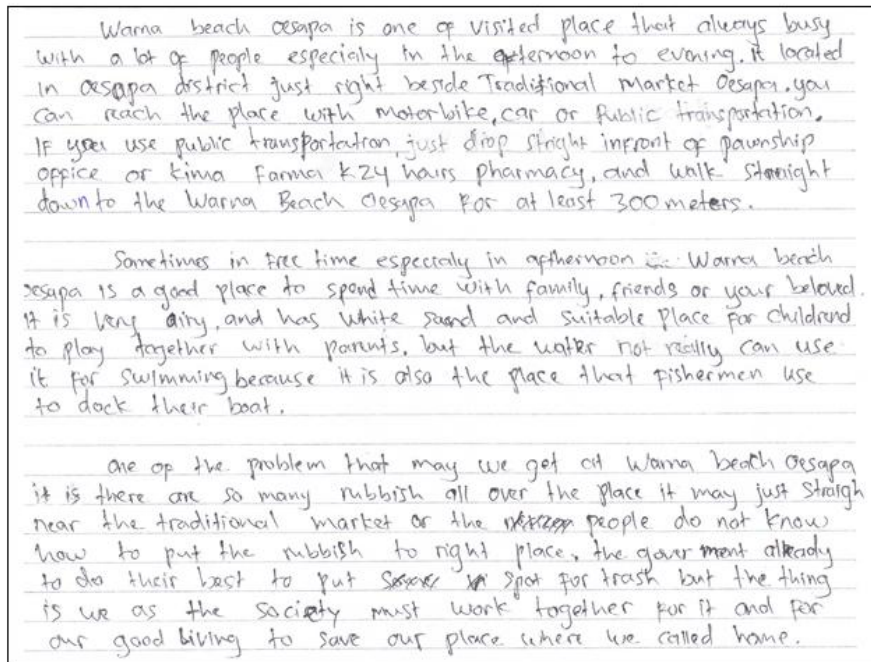 Warna beach Oesapa is one of visited place that always busy
with a lot of people especialy in the afternoon to evening. it located
in oesapa district just right beside Traditional market Oesapa. you
can reach the place with motorbike, car or Public transportation.
If you use public transportation, just drop stright infront of pawnship
office or kima Farma k24 hours pharmacy, and walk straight
down to the Warna Beach Oesapa For at least 300 meters.
Sometimes in free time especialy in afthernoon Warna beach
oesapa is a good place to spend time with family, friends or your beloved.
it is very airy, and has white sand and suitable place for childrend
to play together with parents. but the water not really can use
it for swimming because it is also the place that fishermen use
to dock their boat.
one of the problem that may we get at Warna beach Oesapa
it is there are so many rubbish all over the place it may just straigh
near the traditional market or the people do not know
how to put the rubbish to right place, the goverment already
to do their best to put spot for trash but the thing
is we as the society must work together for it and for
our good living to save our place where we called home.